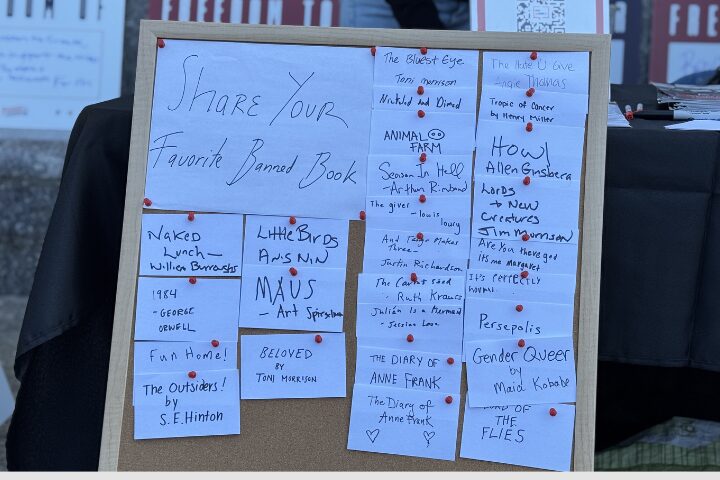 Share Your
Favorite Banned Book
Naked
Lunch —
William Burroughs
1984
- GEORGE
ORWELL
Fun Home!
The Outsiders!
by
S.E. Hinton
Little Birds
Anis Nin
MAUS
- Art
BELOVED
BY
TONI MORRISON
The Bluest Eye
Toni morrison
Nickled and Dimed
ANIMAL
FARM
Season In Hell
- Arthur Rimbaud
The giver
- lowis
lowry
And Tango Makes
Three -
Justin Richardson
The Carrot seed
- Ruth Krauss
Julián is a Mermaid
- Jessica Love
THE DIARY OF
ANNE FRANK
The Diary of
Anne Frank
The Hate U Give
Angie Thomas
Tropic of Cancer
by Henry Miller
Howl
Allen Ginsberg
Lords
+ New
Creatures
Jim Morrison
Are you there god
its me margaret
It's Perfectly
Normal
Persepolis
Gender Queer
by
Maid Kobabe
LORD OF
THE
FLIES